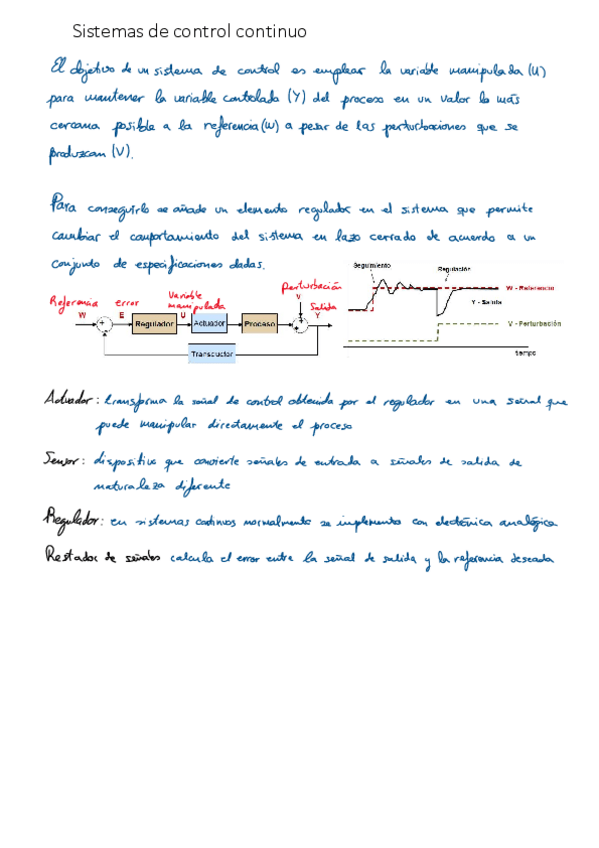 Sistemas de control continuo
El objetivo de un sistema de control es emplear la variable manipulada (U)
para mantener la variable controlada (Y) del proceso en un valor lo más
cercano posible a la referencia (W) a pesar de las perturbaciones que se
produzcan (V).
Para conseguirlo se añade un elemento regulador en el sistema que permite
cambiar el comportamiento del sistema en lazo cerrado de acuerdo a un
conjunto de especificaciones dadas.
Referencia error Variable manipulada perturbación Salida
W E U V Y
Regulador Actuador Proceso
Transductor
Seguimiento Regulación
W - Referencia
Y - Salida
V - Perturbación
tiempo
Actuador: transforma la señal de control obtenida por el regulador en una señal que
puede manipular directamente el proceso
Sensor: dispositivo que convierte señales de entrada a señales de salida de
naturaleza diferente
Regulador: en sistemas continuos normalmente se implementa con electrónica analógica
Restador de señales calcula el error entre la señal de salida y la referencia deseada